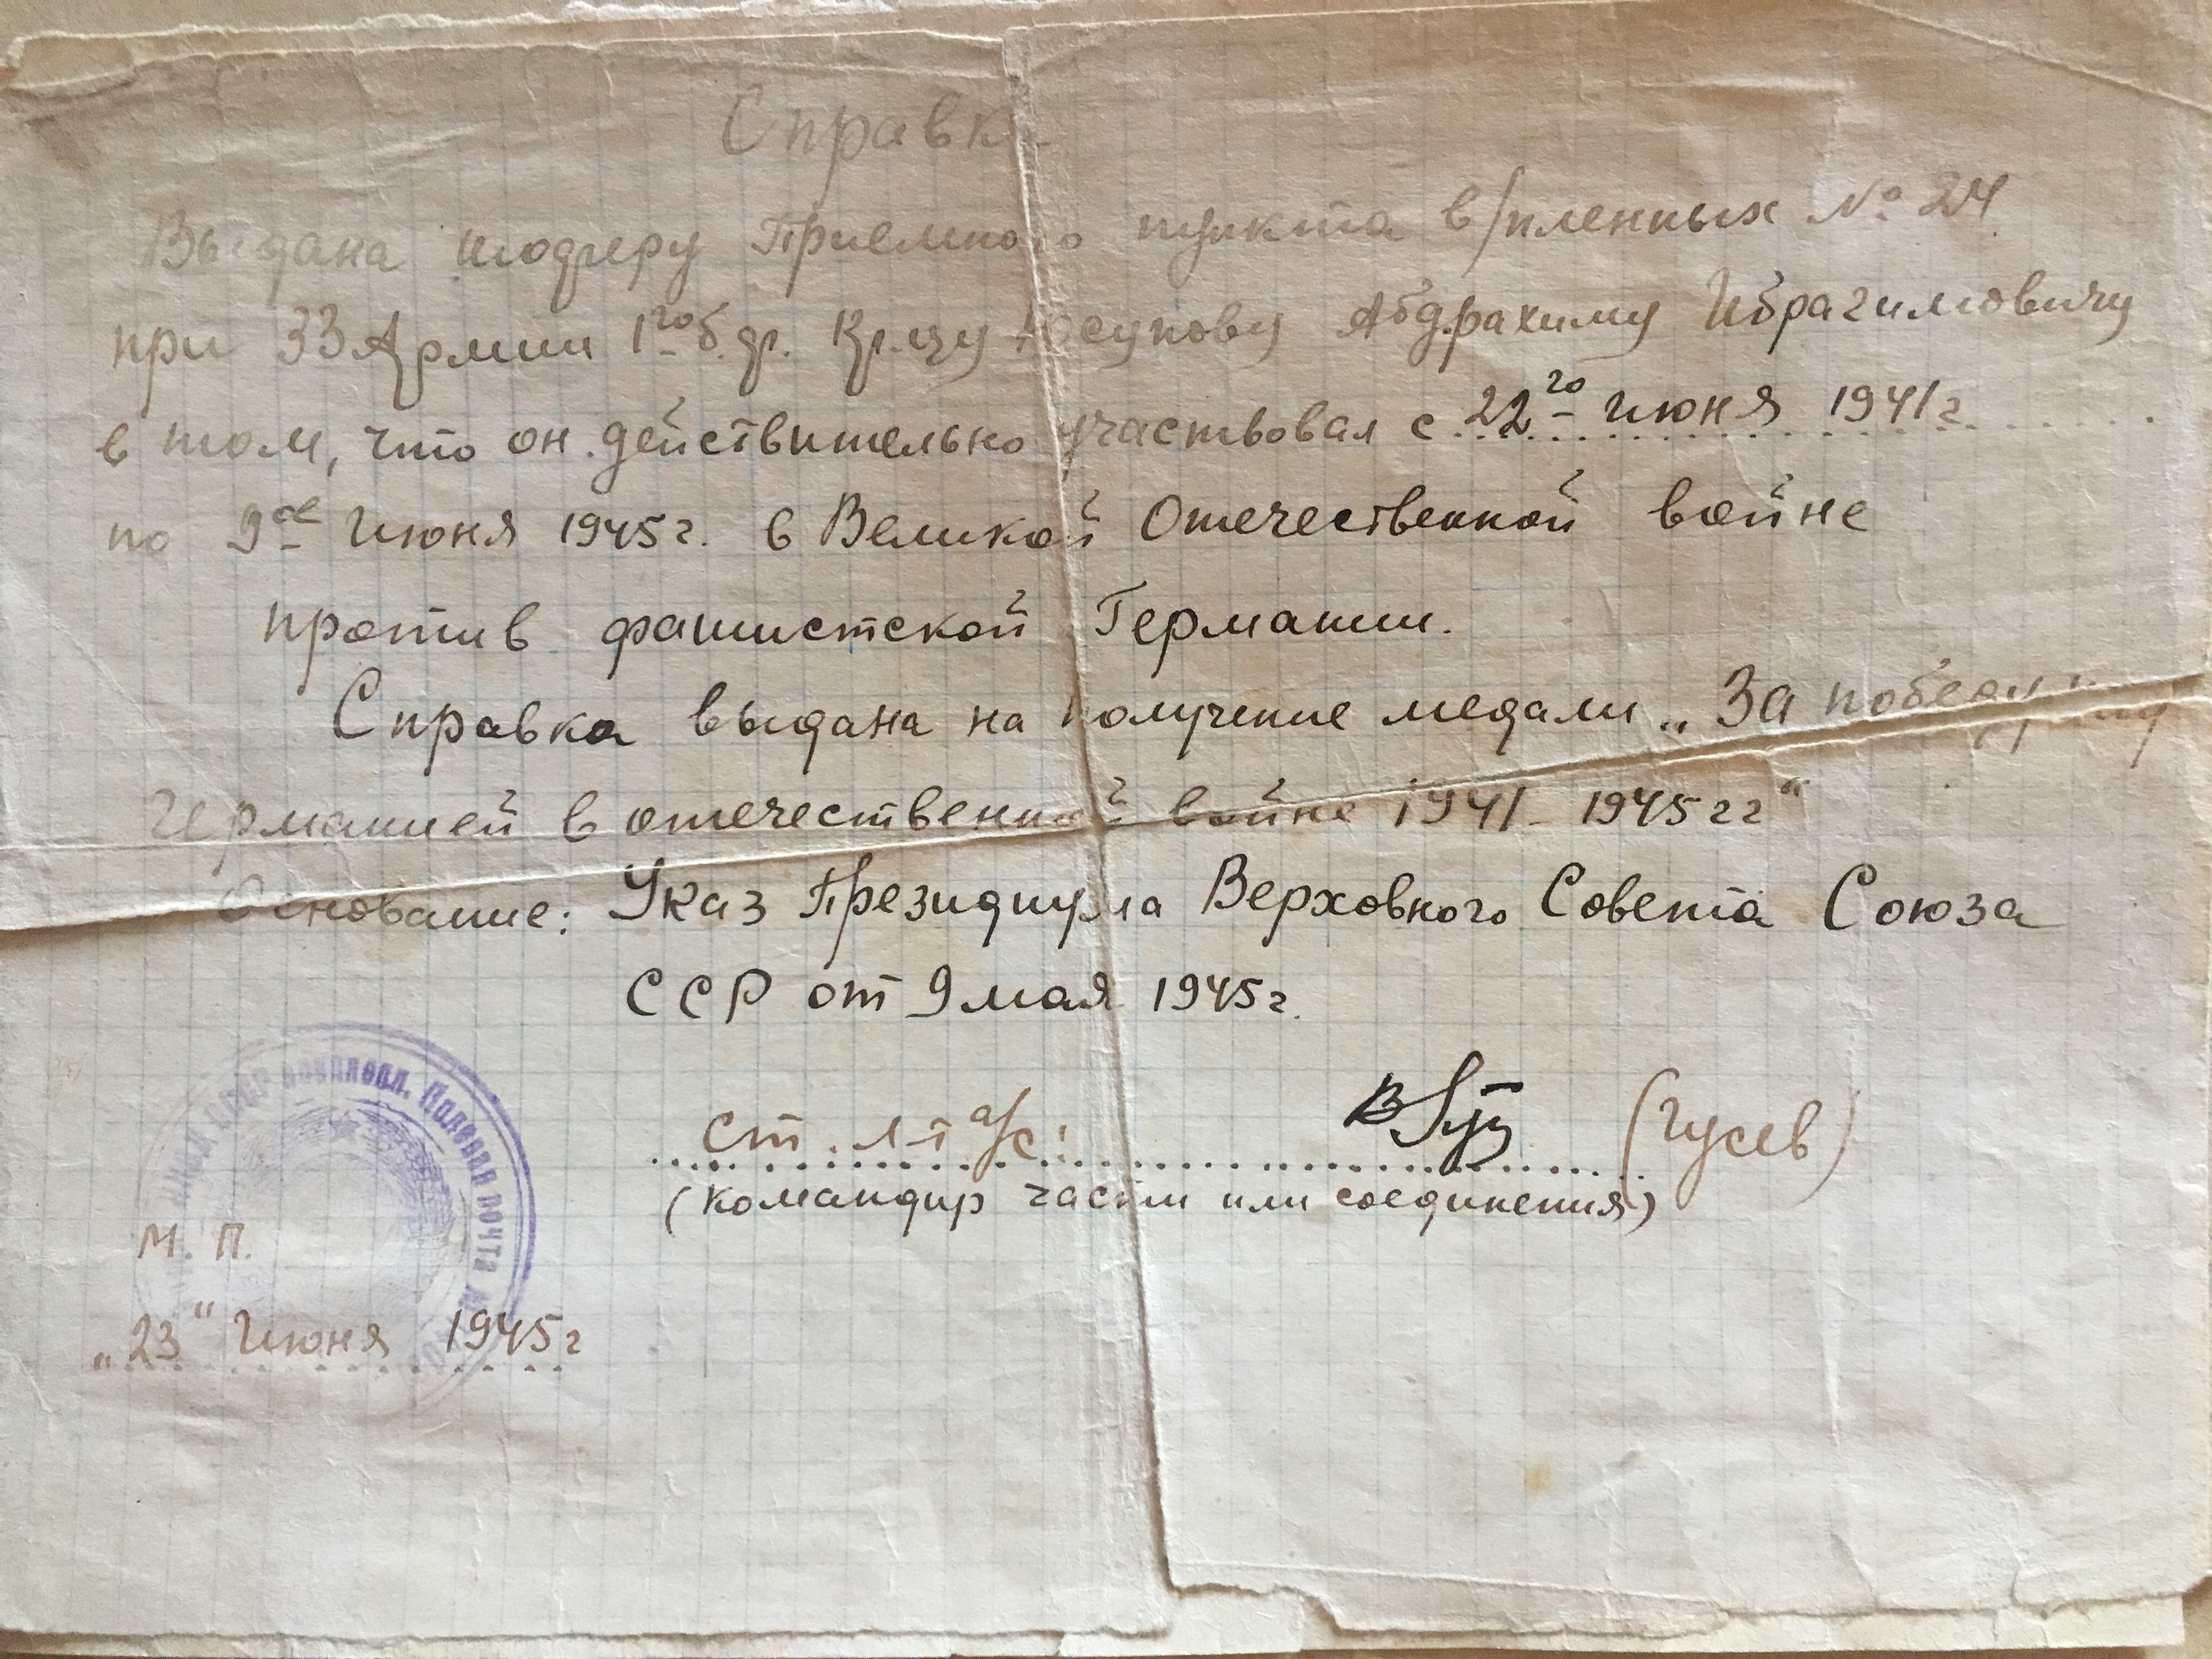 Справка
Выдана шофреру Приемного пункта в/пленных № 24
при 33 Армии 1го б. фр. Кр-цу Юсупову Абдрахиму Ибрагимовичу
в том, что он действительно участвовал с 22го Июня 1941 г.
по 9ое Июня 1945 г. в Великой Отечественной войне
против фашистской Германии.
Справка выдана на получение медали „За победу над
Германией в отечественной войне 1941-1945 гг“
Основание: Указ Президиума Верховного Совета Союза
ССР от 9 мая 1945 г.
ст. л-т а/с: (Гусев)
(командир части или соединения)
СССР Полевая почта №
М. П.
„23“ Июня 1945 г